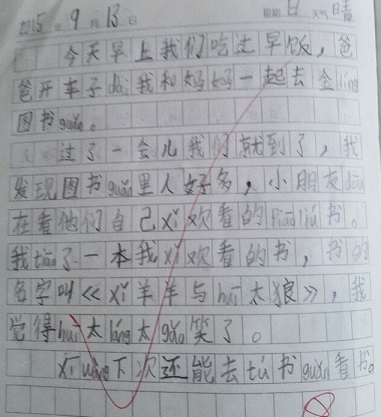 2015年9月13日 星期日 天气晴
今天早上我们吃过早饭，爸
爸开车子dài我和妈妈一起去金líng
图书guǎn。
过了一会儿我们就到了，我
发现图书guǎn里人好多，小朋友dōu
在看他们自己xǐ欢看的piàoliú书。
我tiāo了一本我xǐ欢看的书，书的
名字叫《xǐ羊羊与huī太狼》，我
觉得huī太láng太gǎo笑了。
xī wàng下次还能去tú书guǎn看书。